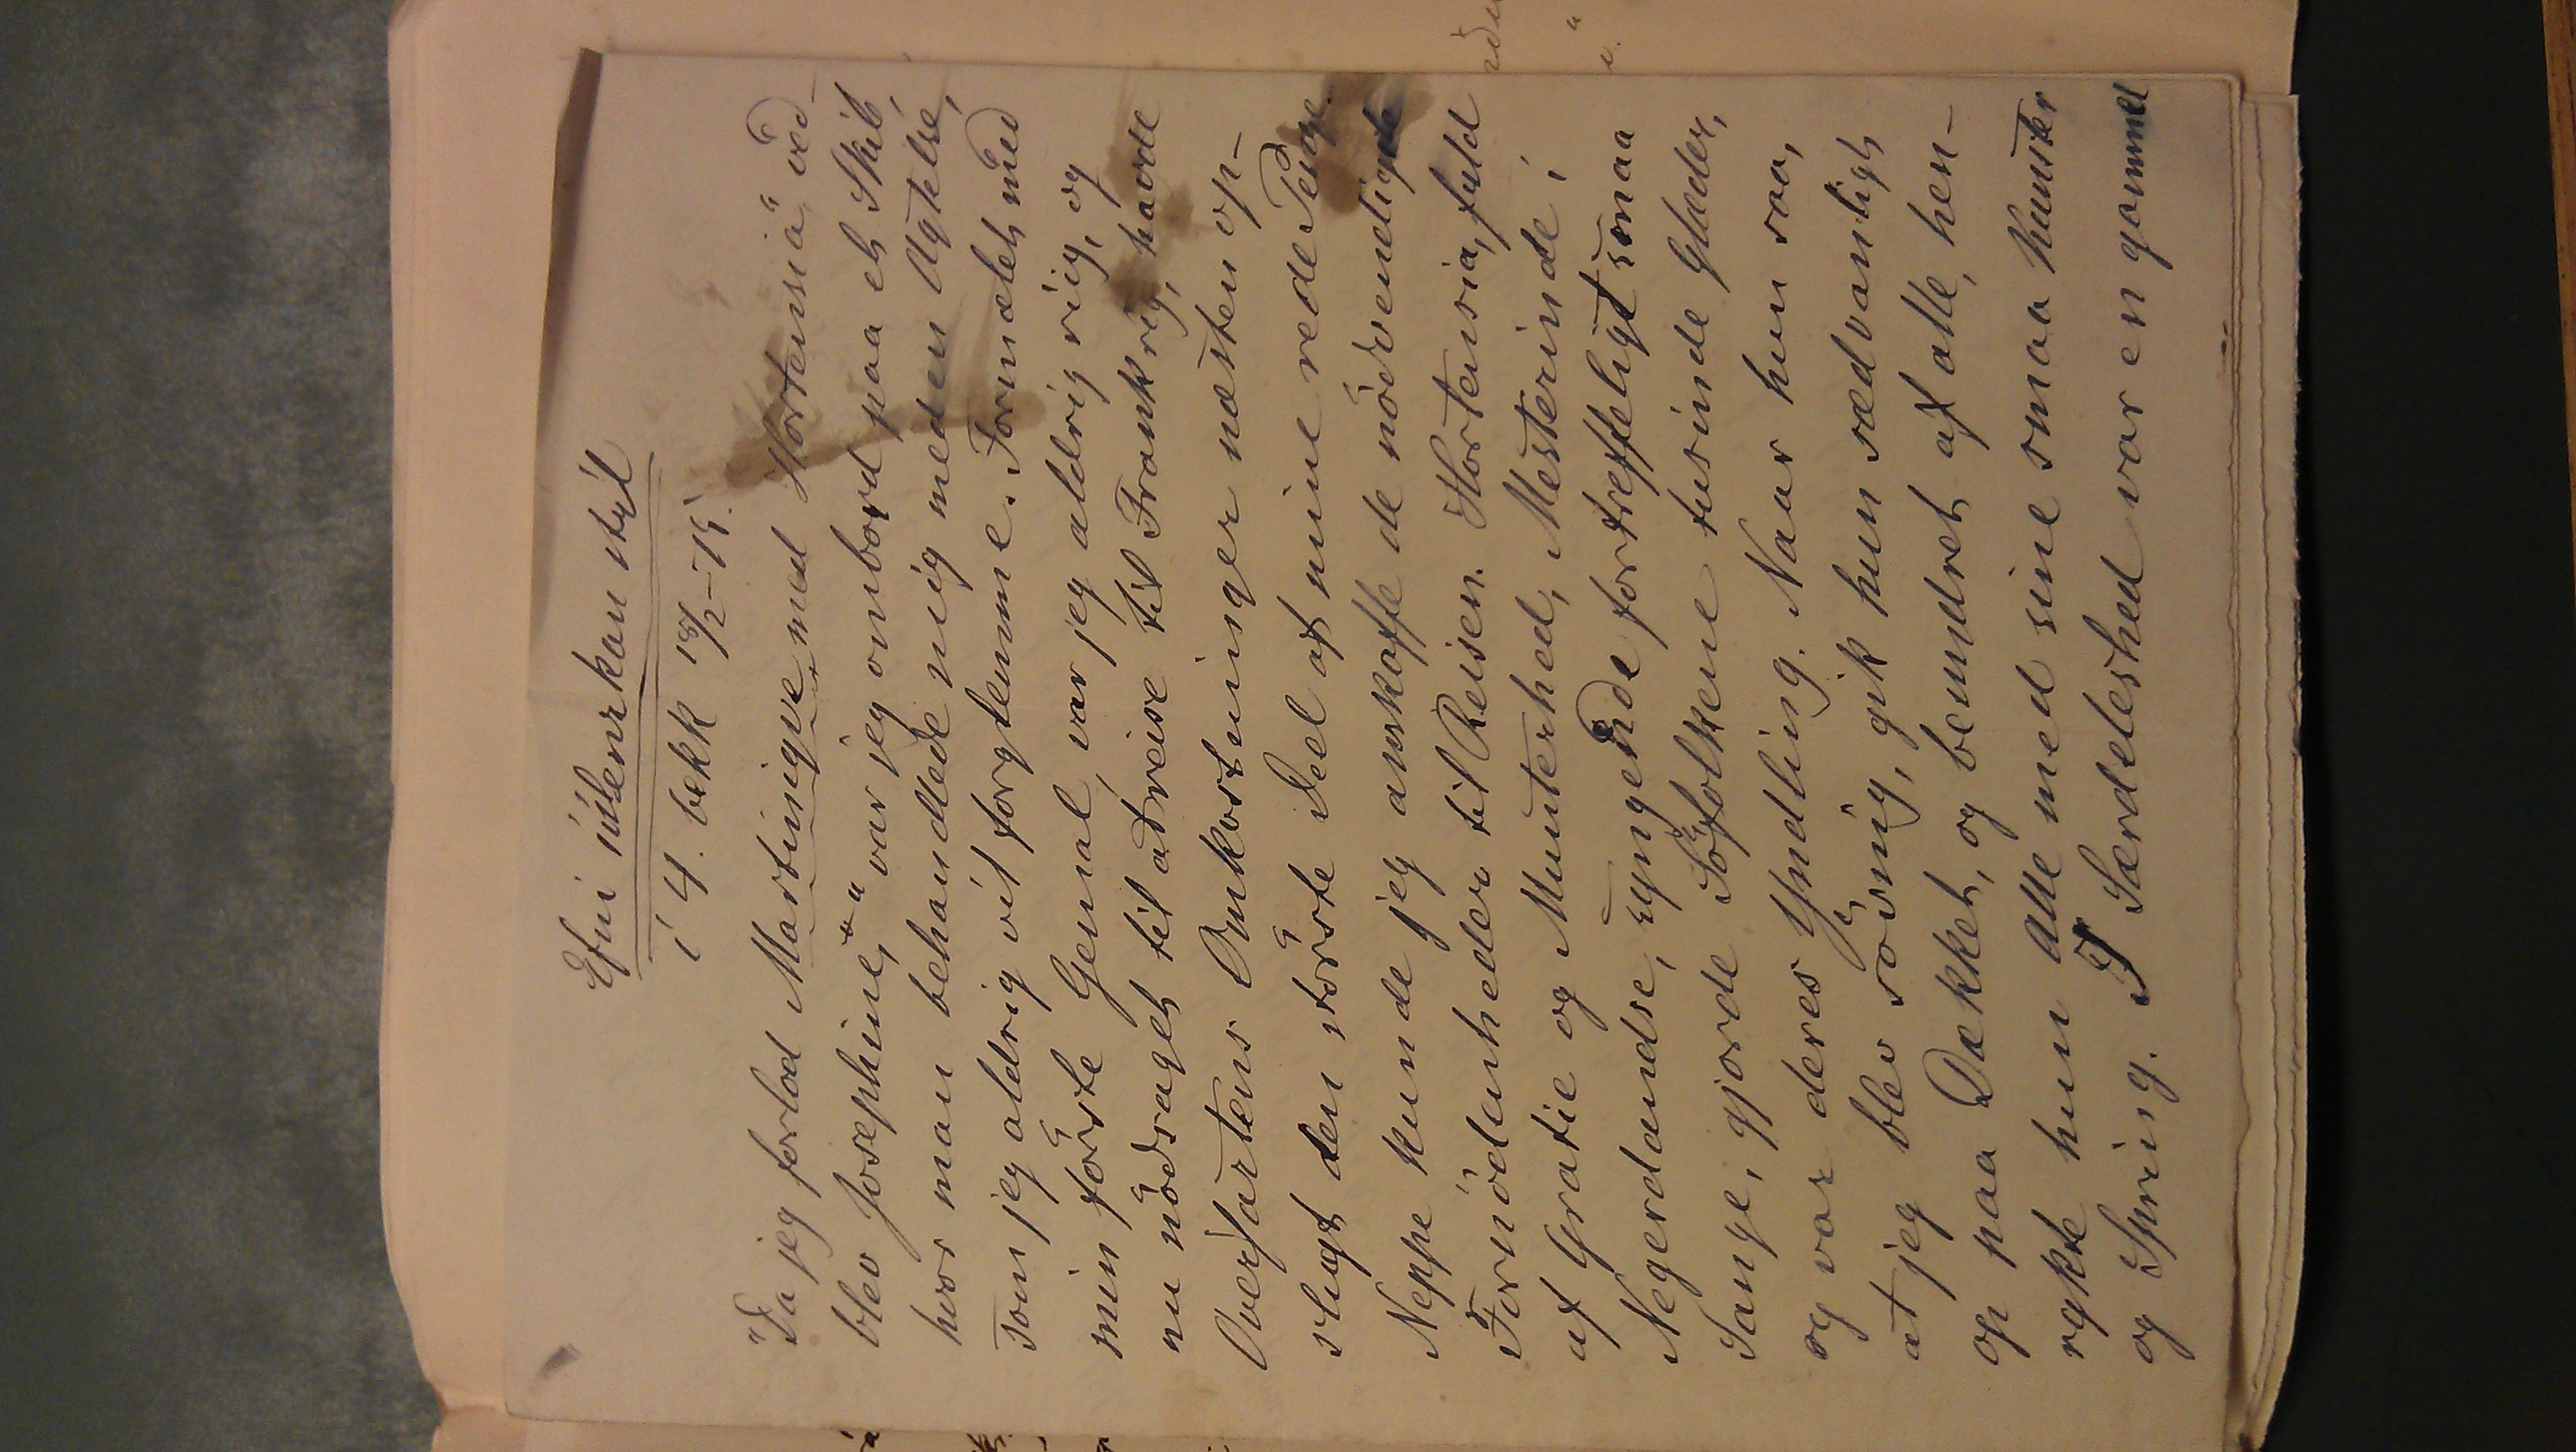 Efni í útlenzkan stýl
í 4. bekk 18/2–75.
"Da jeg forlod Martinique med Hortensia" ved-
blev Josephine, "var jeg ombord paa et Skib,
hvor man behandlede mig med en Agtelse,
som jeg aldrig vil forglemme. Formælet med
min første Gemal, var jeg aldrig riig, og
nu nødsaget til at reise til Frankrig, havde
Overfartens Omkostninger næsten op-
slugt den største Deel af mine rede Penge.
Neppe kunde jeg anskaffe de nødvendigste
Fornödenheder til Reisen. Hortensia, fuld
af Gratie og Munterhed, Mesterinde i
Negerdandse, syngende fortreffeligt smaa
Sange, gjorde Søfolkene tusinde Glæder,
og var deres Yndling. Naar hun saa,
at jeg blev søvnig, gik hun sædvanligt
op paa Dækket, og beundret af alle, hen-
rykte hun alle med sine smaa Kunster
og Spring. I Særdeleshed var en gammel